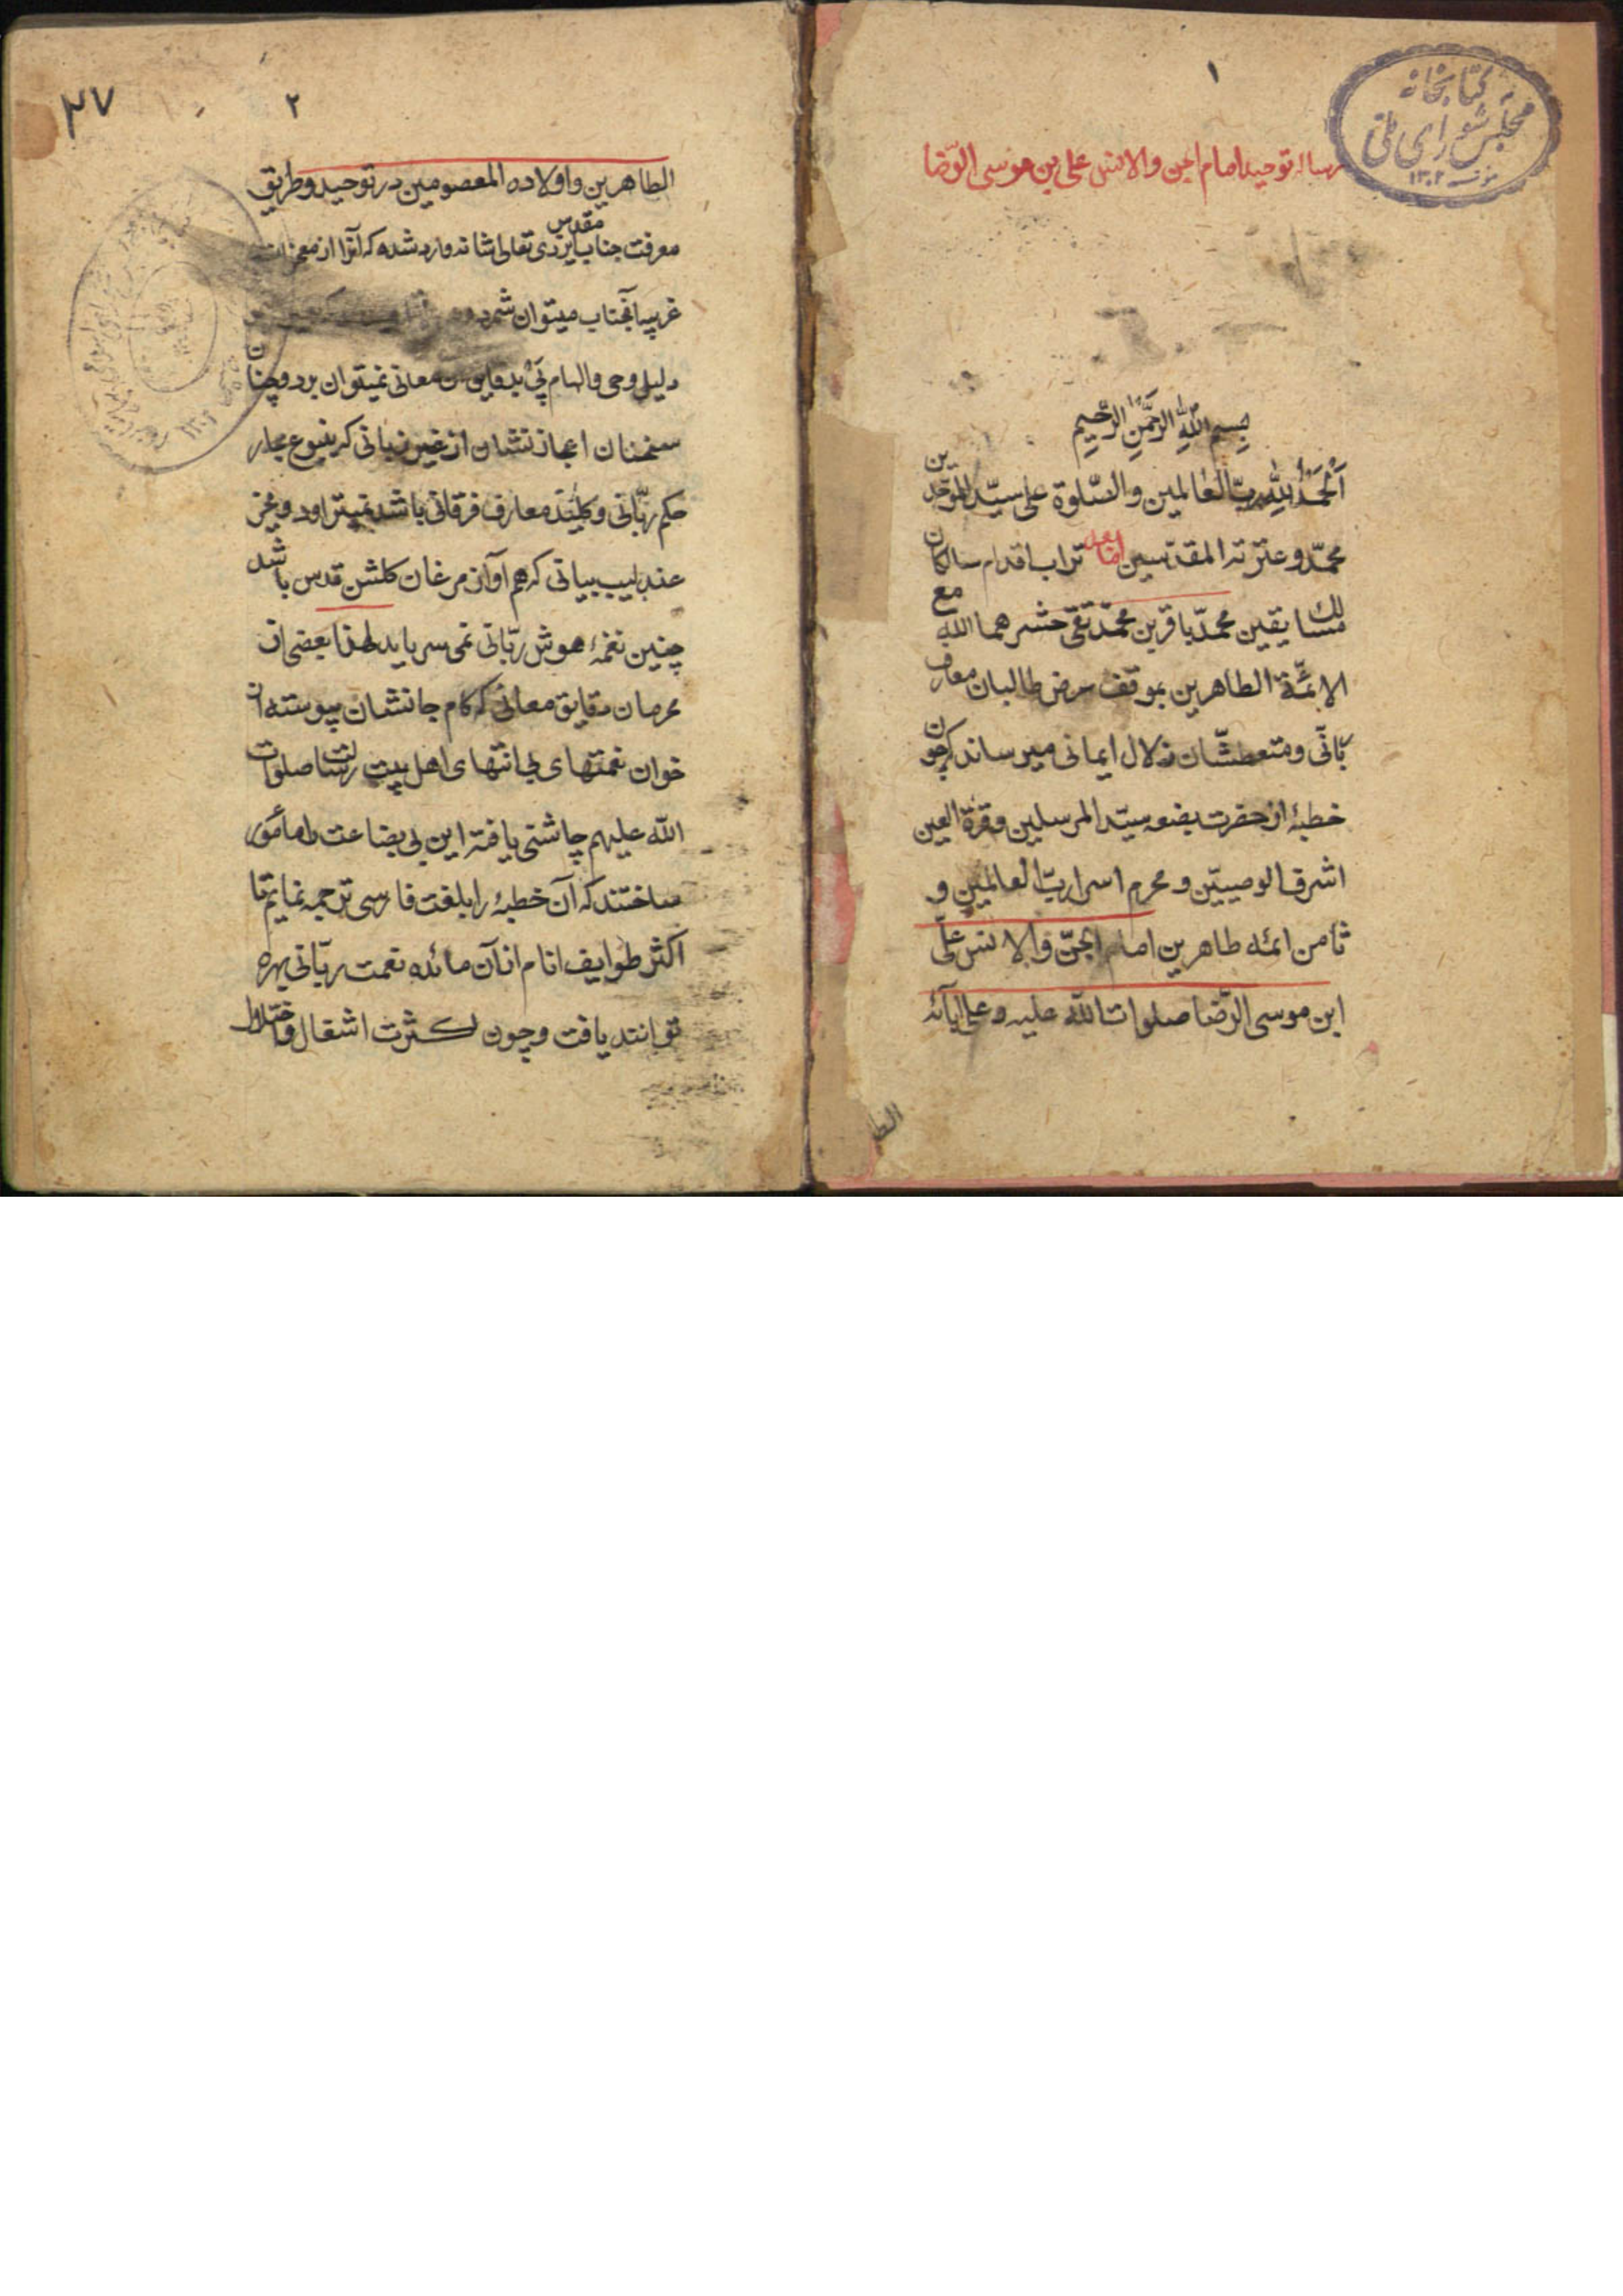 ۱
کتابخانه
مجلس شورای ملی
۱۳۰۲
رساله توحید امام الجن والانس علی بن موسی الرّضا
بِسمِ اللّهِ الرَّحمَنِ الرَّحِیمِ
اَلْحَمْدُ لِلّهِ رَبِّ العٰالمین والصّلوة علی سیّد الموّحدین
محمّد و عترته المقدّسین امّا بعد تراب اقدام سالکان
مسالک یقین محمّد باقر بن محمّد تقی حشرهما الله مع
الائمّة الطاهرین بموقف عرض طالبان معارف
ربّانّی و متعطشّان زلال ایمانی میرساند که چون
خطبهٔ از حضرت بضعه سیّد المرسلین و قرة العین
اشرف الوصییّن و محرم اسرار ربّ العالمین و
ثامن ائمه طاهرین امام الجنّ والانس علّی
ابن موسی الرّضا صلوات الله علیه و علی ابآئه
الطا
۲
۳۷
الطاهرین و اولاده المعصومین در توحید و طریق
معرفت جناب مقدس ایزدی تعالی شانه وارد شده که آنرا از معجزات
غریبه آنجناب میتوان شمرد
دلیل وحی و الهام پَیْ بدقایق معانی نمیتوان برد و چنان
سخنان اعجاز نشان از غیر زبانی که ینبوع بحار
حکم ربّانی و کلیٖد معارف فرقانی باشد نمیتراود و بجز
عندلیب بیانی که هم آواز مرغان کلشن قدس باشد
چنین نغمهٔ هوش ربّائی نمی سراید لهذا بعضی از
محرمان دقایق معانی که کام جانشان پیوسته از
خوان نعمتهای بی انتهای اهل بیت رسالت صلوات
الله علیهم چاشنی یافته این بی بضاعت را مامور
ساختند که آن خطبهٔ را بلغت فارسی ترجمه نمایم تا
اکثر طوایف انام از آن مائده نعمت ربّانی بهره
توانند یافت و چون لکثرت اشغال و اختلال